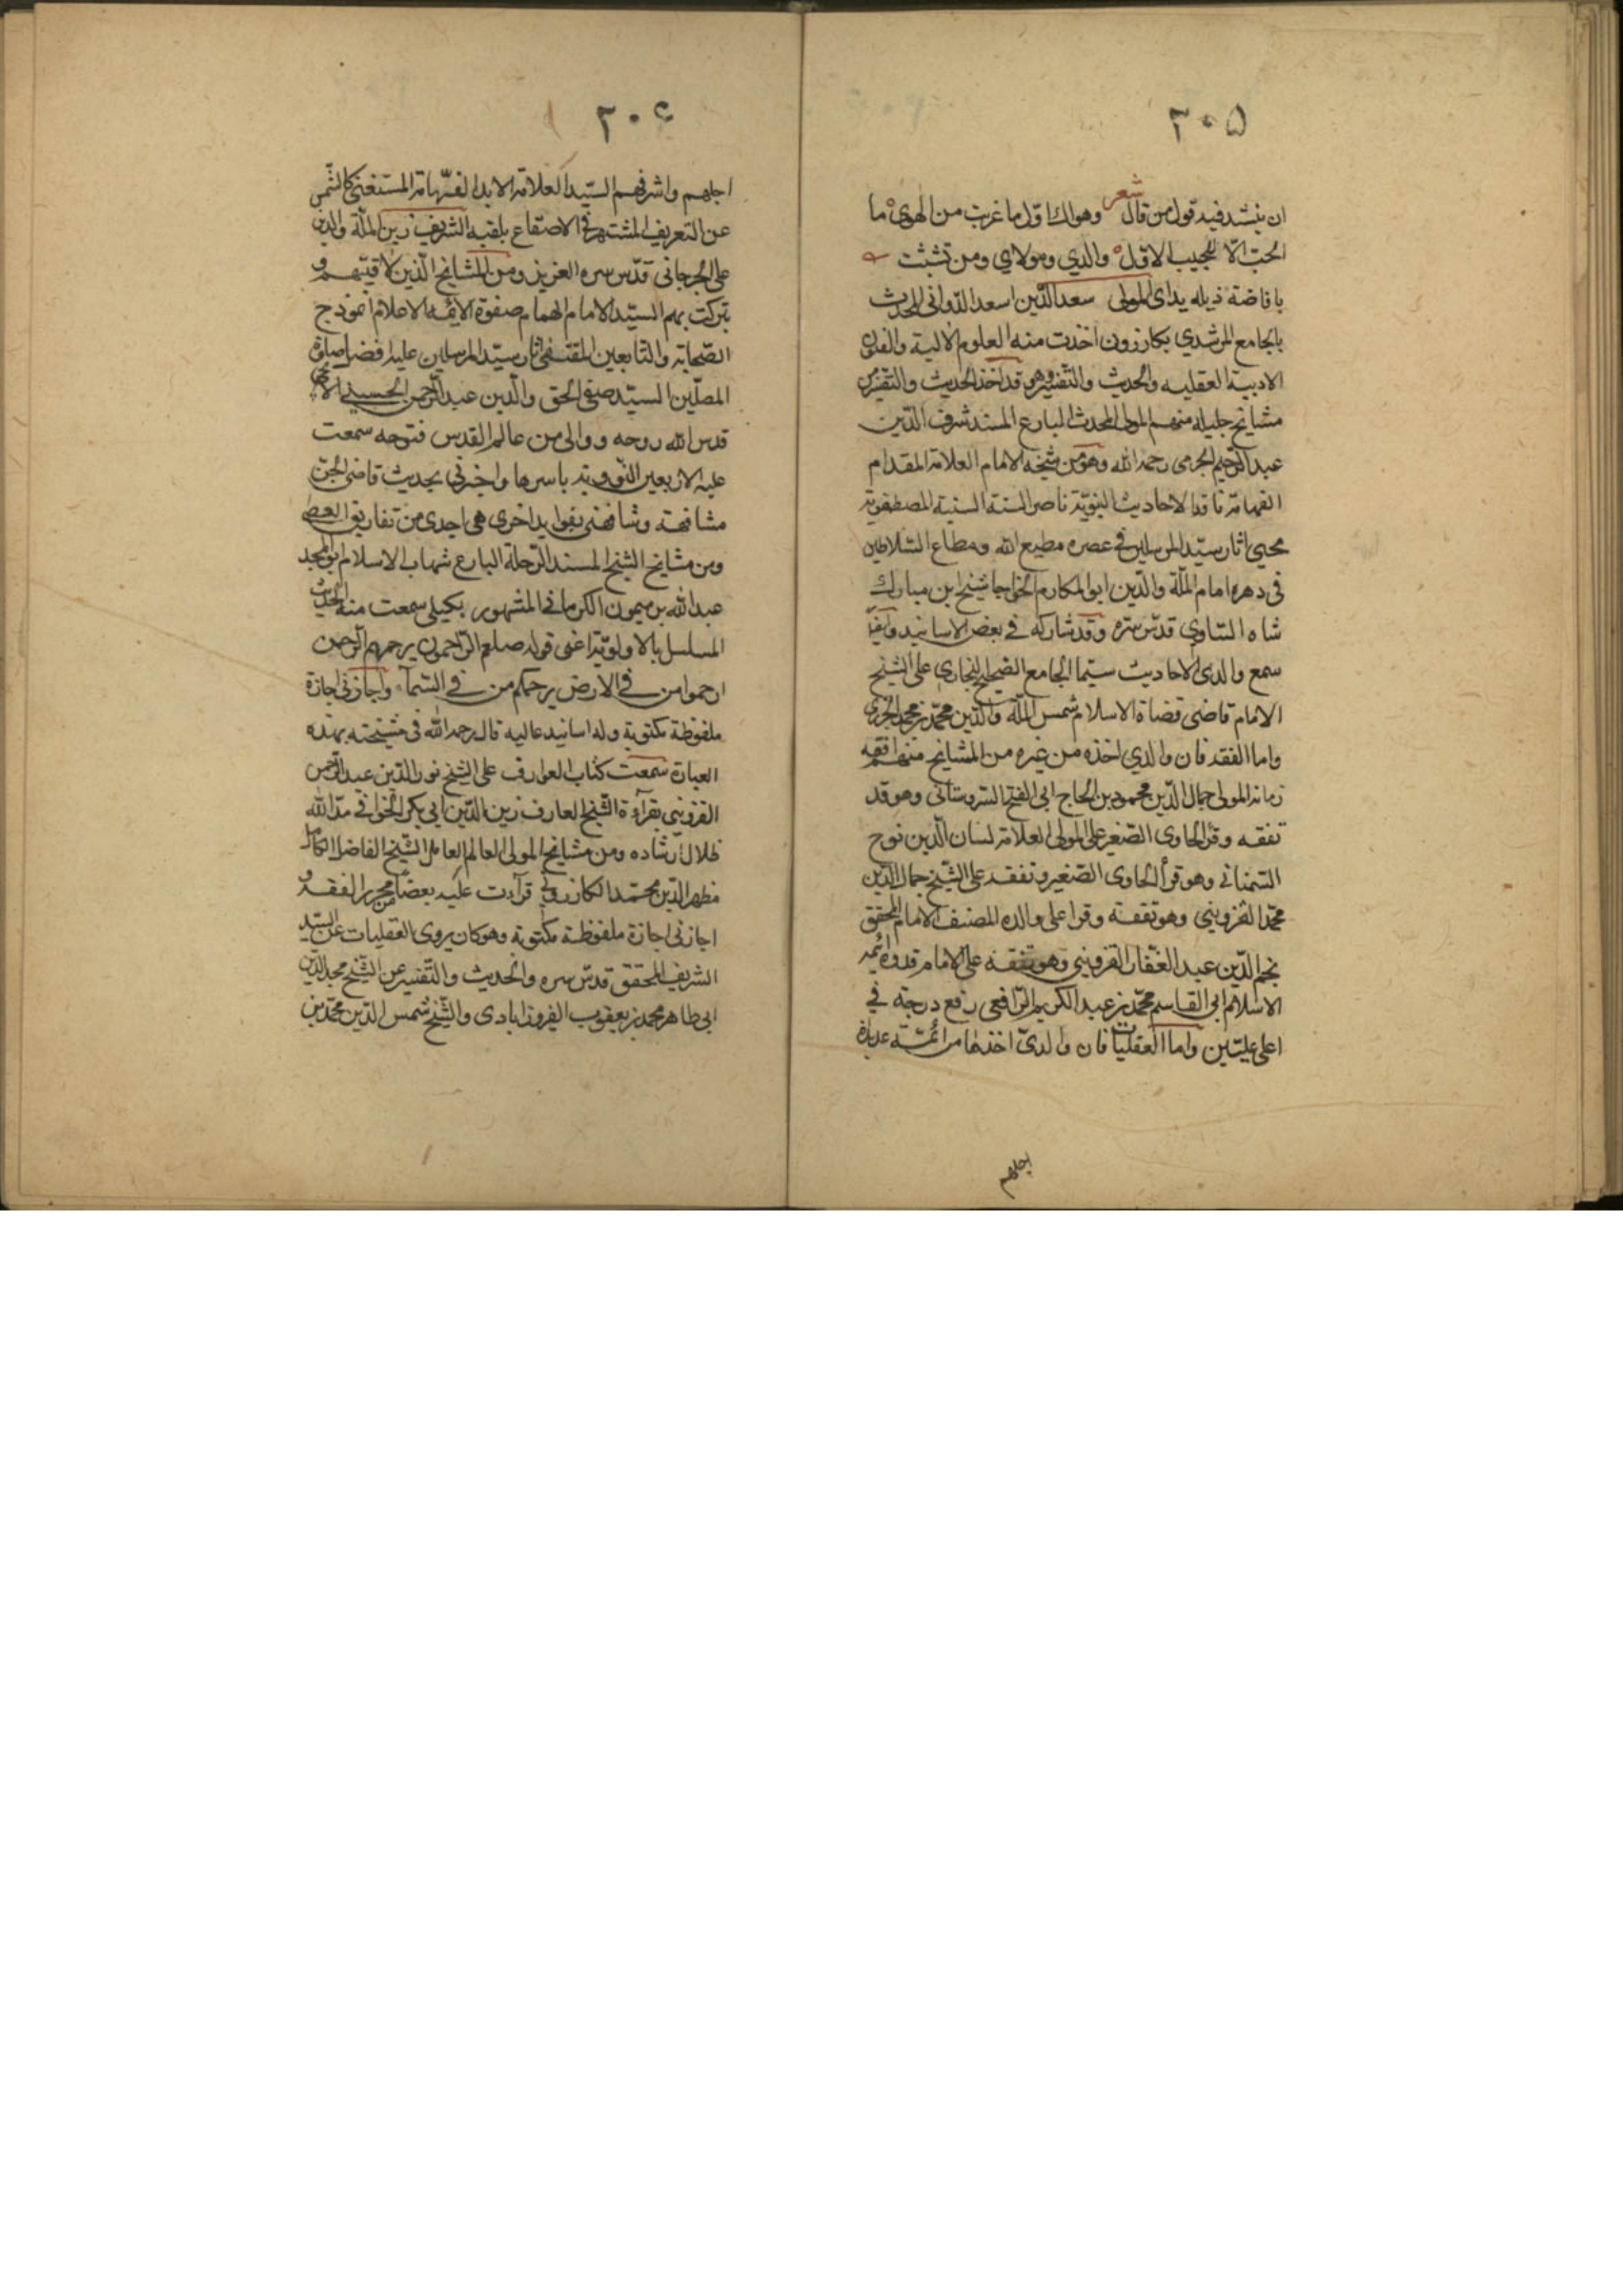 ٣٠٥
ان ينشد فيه قول من قال شعر وهواك اول ما عرفت من الهوى ما
الحب الا للحبيب الاول والدي ومولاي ومن تشبثت
بافاضة ذيله يداى المولى سعد الدين اسعد الدوانى المحدث
بالجامع المرشدي بكازرون اخذت منه العلوم الالية والفنون
الادبية العقليه والحديث والتفسير وهو قد اخذ الحديث والتفسير من
مشايخ جليله منهم المولى المحدث البارع المسند شرف الدين
عبد الرحيم الجرمى رحمه الله وهو من شيخه الامام العلامة المقدام
الفهامة ناقد الاحاديث النبوية ناصر السنة السنية المصطفوية
محيي اثار سيد المرسلين في عصره مطيع الله ومطاع السلاطين
فى دهره امام الملة والدين ابو المكارم الخواجا شيخ ابن مبارك
شاه الساوى قدس سره وقد شاركه في بعض الاسانيد وايضا
سمع والدى الاحاديث سيما الجامع الصحيح للبخارى على الشيخ
الامام قاضى قضاة الاسلام شمس الملة والدين محمد بن محمد الجزرى
واما الفقه فان والدي اخذه من غيره من المشايخ منهم افقه
زمانه المولى جمال الدين محمود بن الحاج ابى الفتح السروستانى وهو قد
تفقه وقرأ الحاوى الصغير على المولى العلامة لسان الدين نوح
السمنانى وهو قرأ الحاوى الصغير وتفقه على الشيخ جمال الدين
محمد القزويني وهو تفقه وقرا على والده المصنف الامام المحقق
نجم الدين عبد الغفار القزويني وهو تفقه على الامام قدوة ائمة
الاسلام ابى القاسم محمد بن عبد الكريم الرافعى رفع درجته في
اعلى عليين واما العقليات فان والدى اخذها من ائمة عديدة
اجلهم
٣٠٦
اجلهم واشرفهم السيد العلامة الابد الفهامة المستغنى كالشمس
عن التعريف المشتهر في الاصقاع بلقبه الشريف زين الملة والدين
على الجرجانى قدس سره العزيز ومن المشايخ الذين لاقيتهم و
تبركت بهم السيد الامام الهمام صفوة الائمة الاعلام انموذج
الصحابة والتابعين المقتفى اثار سيد المرسلين عليه افضل صلوة
المصلين السيد صفى الحق والدين عبد الرحمن الحسيني الايجى
قدس الله روحه ووالى من عالم القدس فتوحه سمعت
عليه الاربعين النووية باسرها واخبرنى بحديث قاضى الجن
مشافهة وشافهنى بفوايد اخرى هى احدى من تفاريق العصا
ومن مشايخ الشيخ المسند الرحلة البارع شهاب الاسلام ابو المجد
عبد الله بن ميمون الكرمانى المشهور بكيلى سمعت منه الحديث
المسلسل بالاولوية اعنى قوله صلعم الراحمون يرحمهم الرحمن
ارحموا من في الارض يرحمكم من في السماء واجازنى اجازة
ملفوظة مكتوبة وله اسانيد عاليه قال رحمه الله في مشيخته بهذه
العبارة سمعت كتاب العوارف على الشيخ نور الدين عبد الرحمن
القزويني بقرآءة الشيخ العارف زين الدين ابي بكر الخوافي مد الله
ظلال ارشاده ومن مشايخ المولى العالم العامل الشيخ الفاضل الكامل
مظهر الدين محمد الكازروني قرأت عليه بعضا من محرر الفقه و
اجازنى اجازة ملفوظة مكتوبة وهو كان يروى العقليات عن السيد
الشريف المحقق قدس سره والحديث والتفسير عن الشيخ مجد الدين
ابى طاهر محمد بن يعقوب الفيروزابادى والشيخ شمس الدين محمد بن